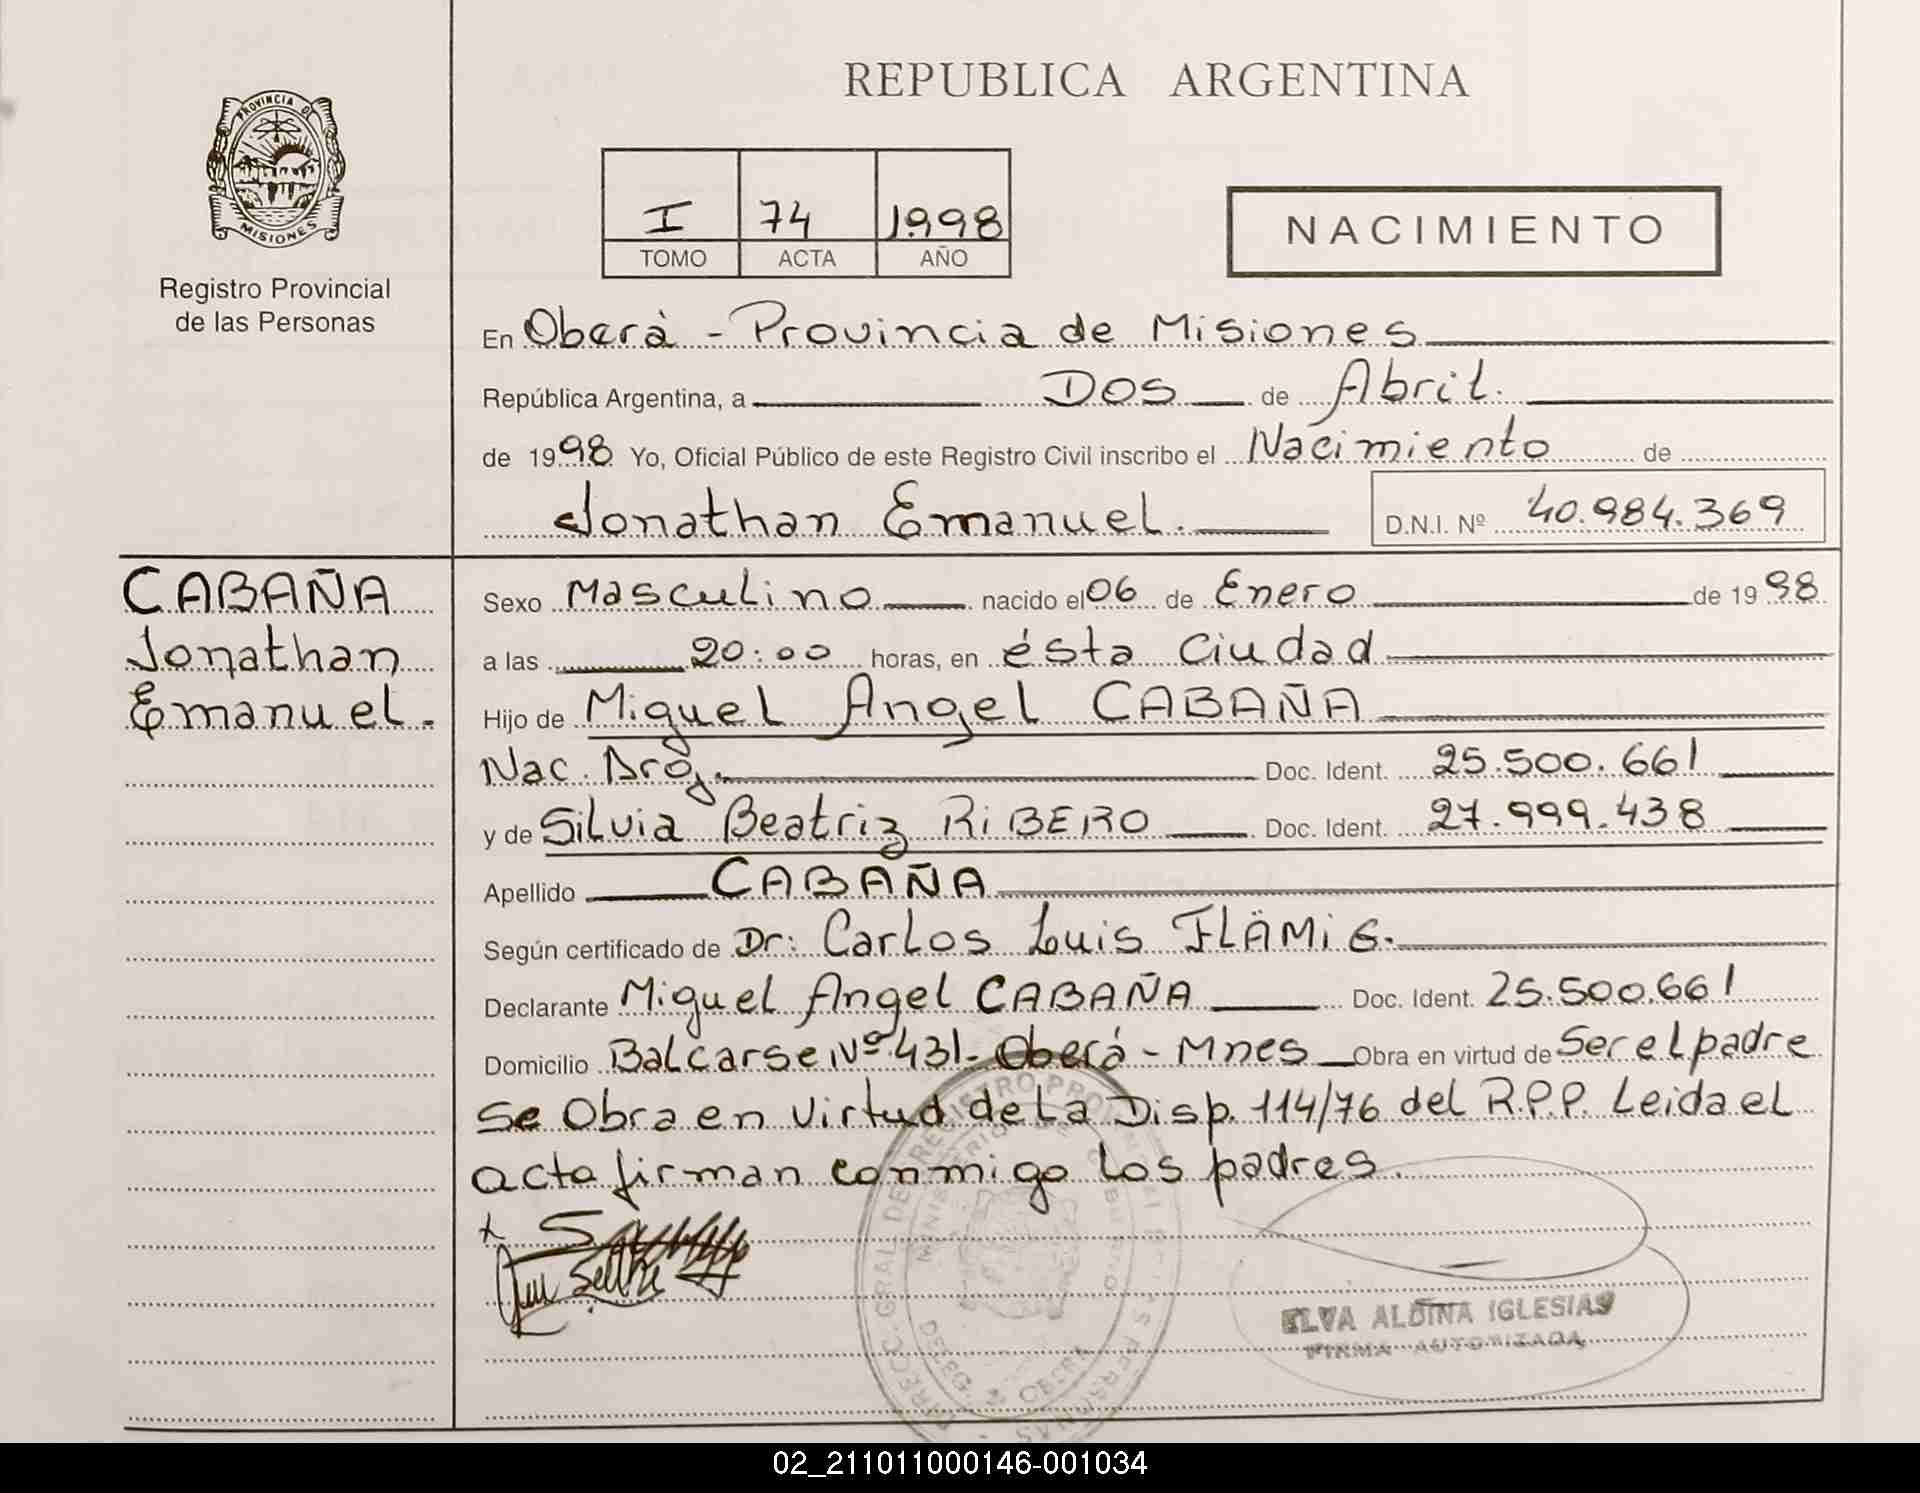 REPUBLICA ARGENTINA
PROVINCIA DE
MISIONES
Registro Provincial
de las Personas
I 74 1998
TOMO ACTA AÑO
NACIMIENTO
En Oberà - Provincia de Misiones
República Argentina, a DOS de Abril.
de 1998 Yo, Oficial Público de este Registro Civil inscribo el Nacimiento de
Jonathan Emanuel. D.N.I. Nº 40.984.369
CABAÑA
Jonathan
Emanuel.
Sexo Masculino nacido el 06 de Enero de 1998
a las 20:00 horas, en ésta Ciudad
Hijo de Miguel Angel CABAÑA
Nac. Arg. Doc. Ident. 25.500.661
y de Silvia Beatriz RIBERO Doc. Ident. 27.999.438
Apellido CABAÑA
Según certificado de Dr: Carlos Luis FLÄMIG.
Declarante Miguel Angel CABAÑA Doc. Ident. 25.500.661
Domicilio Balcarse Nº 431- Oberá - Mnes Obra en virtud de Ser el padre
Se Obra en Virtud de La Disp. 114/76 del R.P.P. Leida el
acta firman conmigo los padres.
ELVA ALDINA IGLESIAS
FIRMA AUTORIZADA
02_211011000146-001034